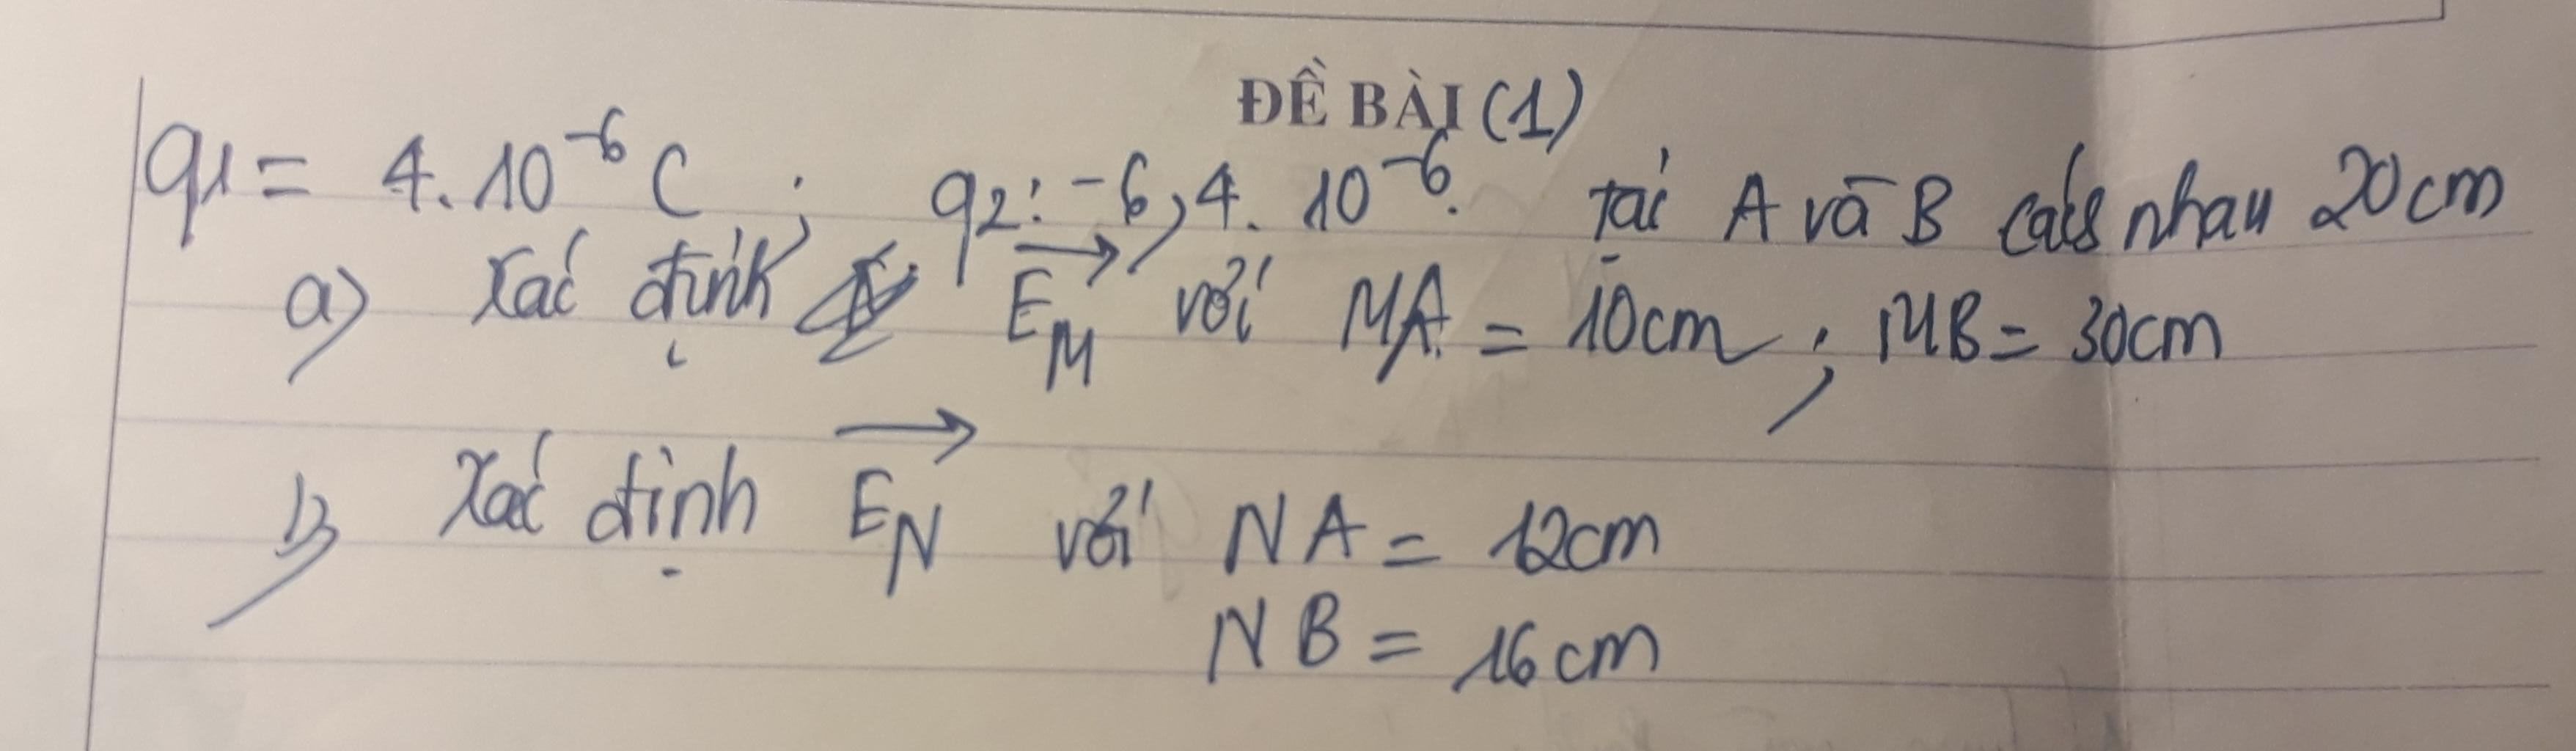 ĐỀ BÀI (1)
q1 = 4.10⁻⁶ C ; q2: -6,4.10⁻⁶. tại A và B cách nhau 20cm
a) Xác định E⃗_M với MA = 10cm ; MB = 30cm
b) Xác định E⃗_N với NA = 12cm
NB = 16cm